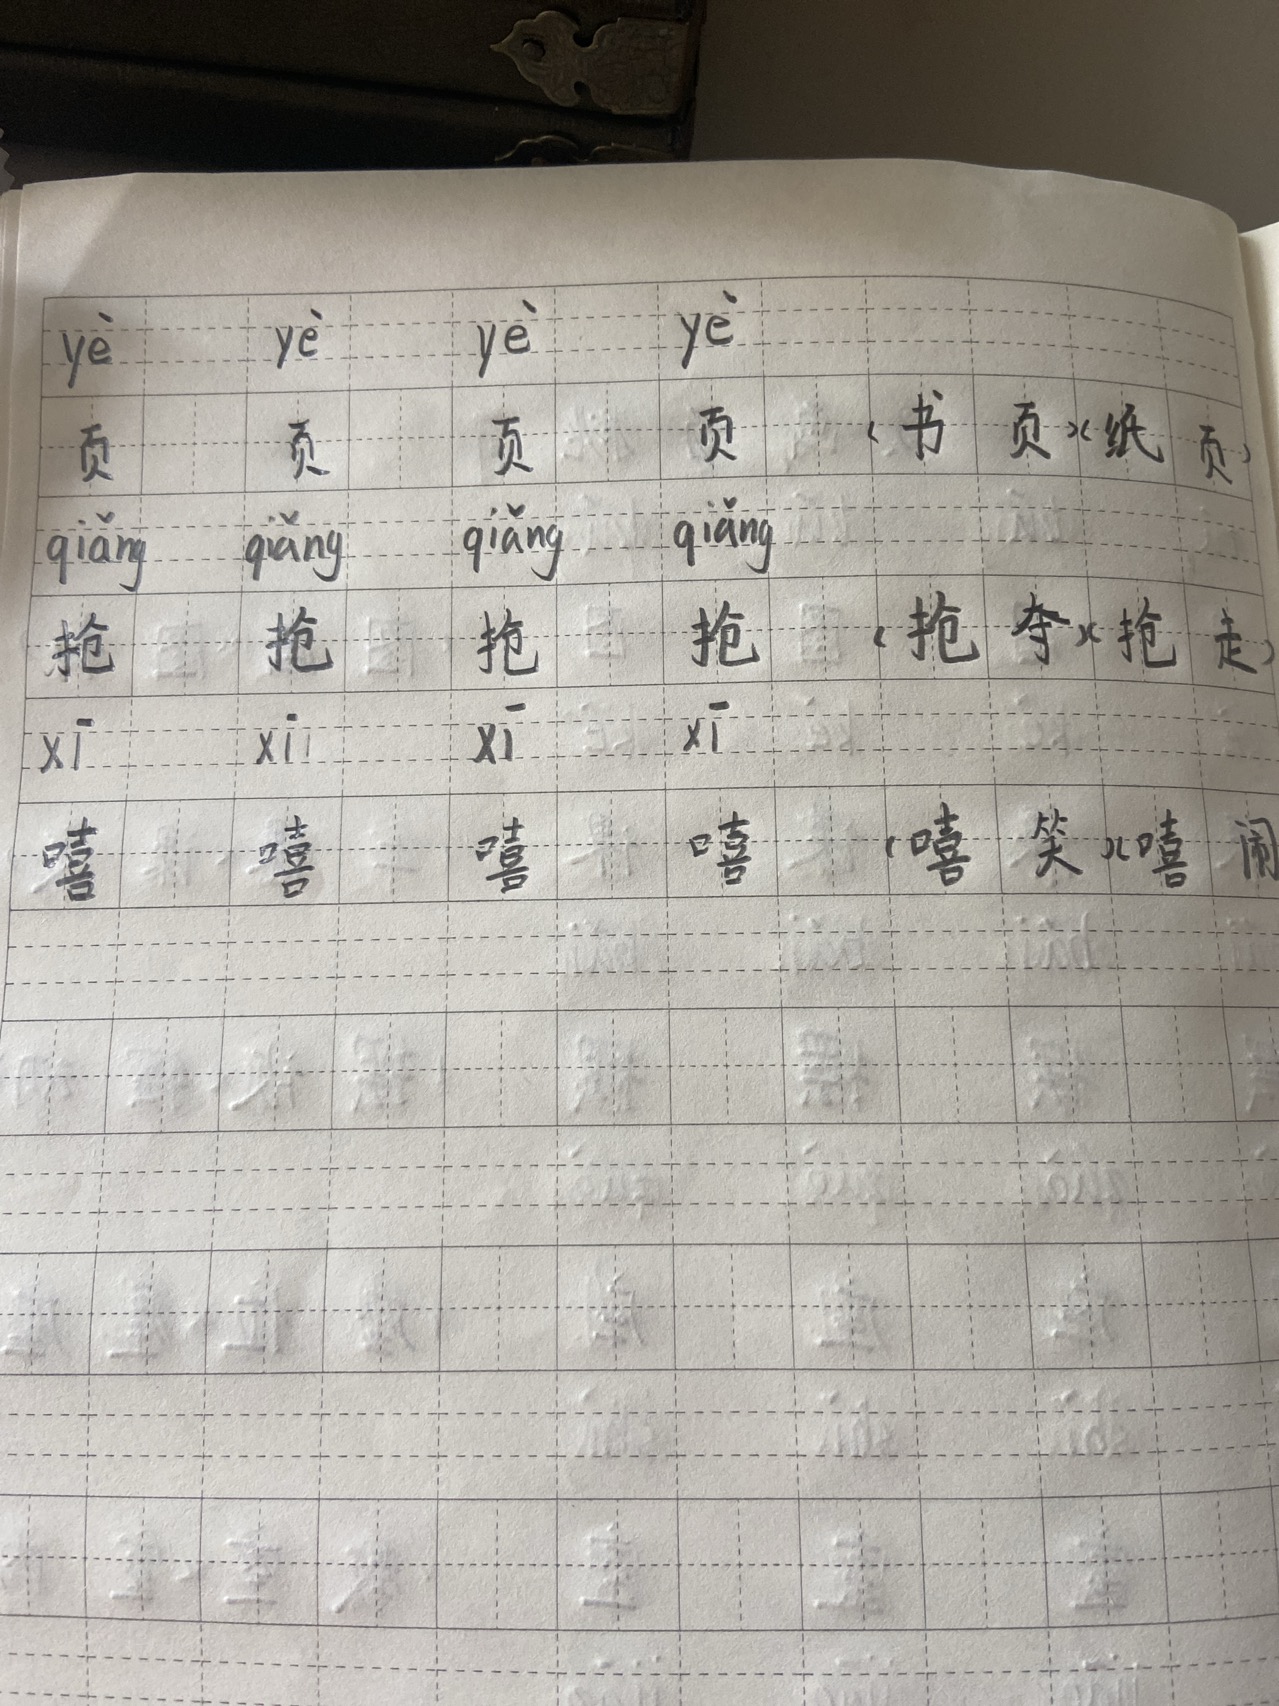 yè yè yè yè
页 页 页 页 （书页）（纸页）
qiǎng qiǎng qiǎng qiǎng
抢 抢 抢 抢 （抢夺）（抢走）
xī xī xī xī
嘻 嘻 嘻 嘻 （嘻笑）（嘻闹